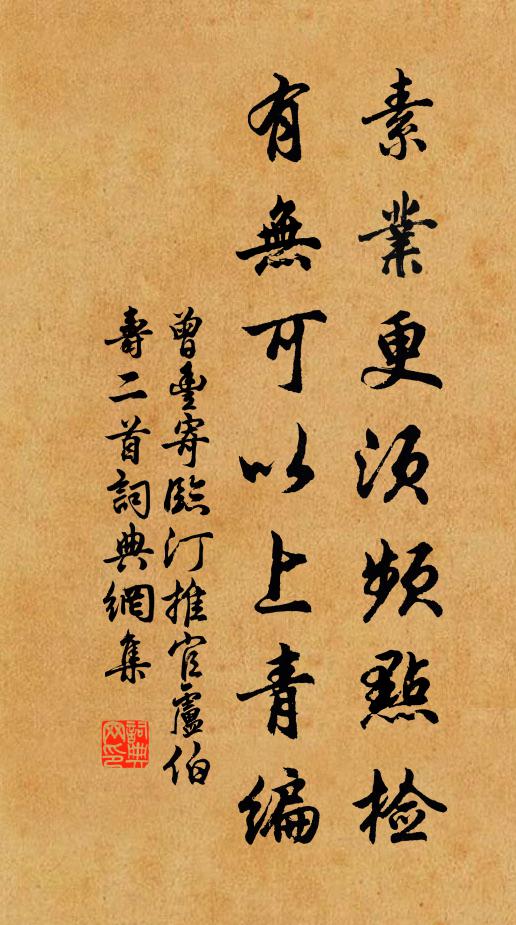 素業更須頻點檢
有無可以上青編
曾豐寄臨汀推官盧伯
壽二首詞典網集
詞典網印